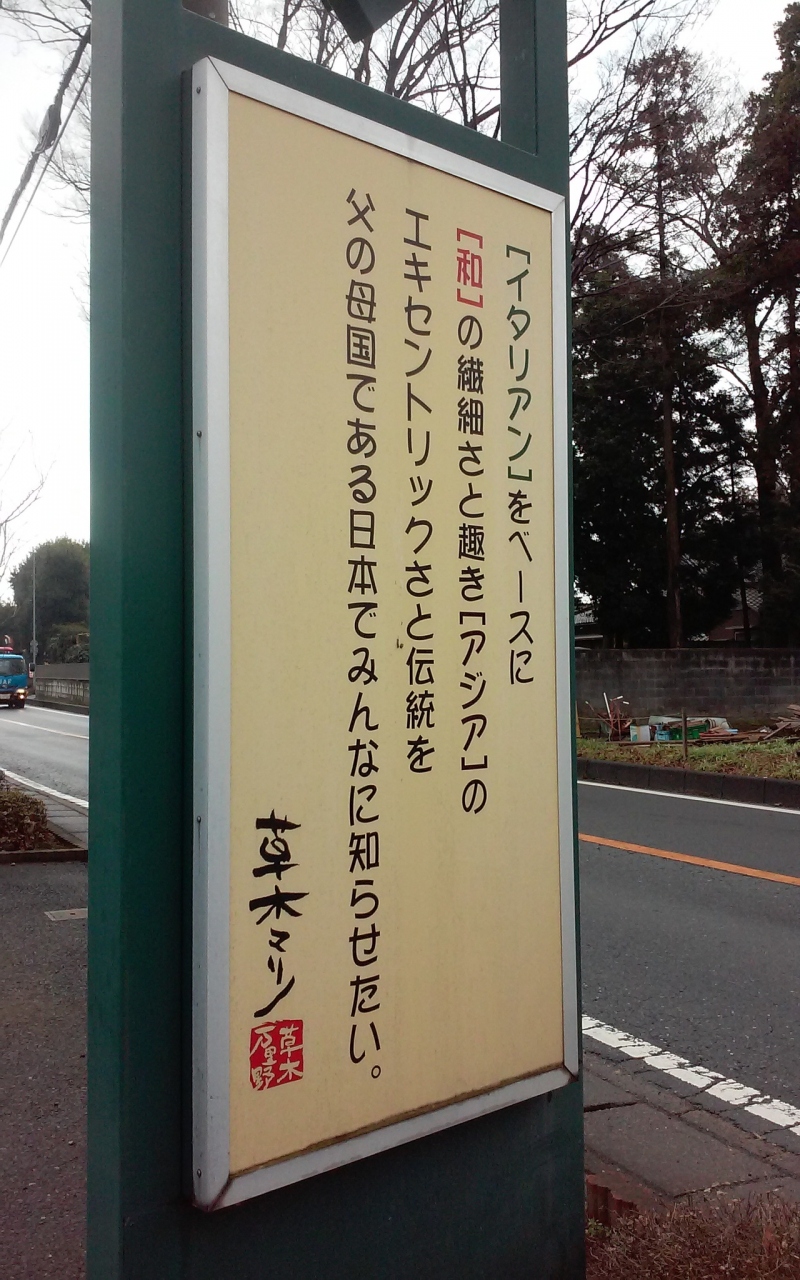 [イタリアン]をベースに
[和]の繊細さと趣き[アジア]の
エキセントリックさと伝統を
父の母国である日本でみんなに知らせたい。
草木マリノ
草木
万里野